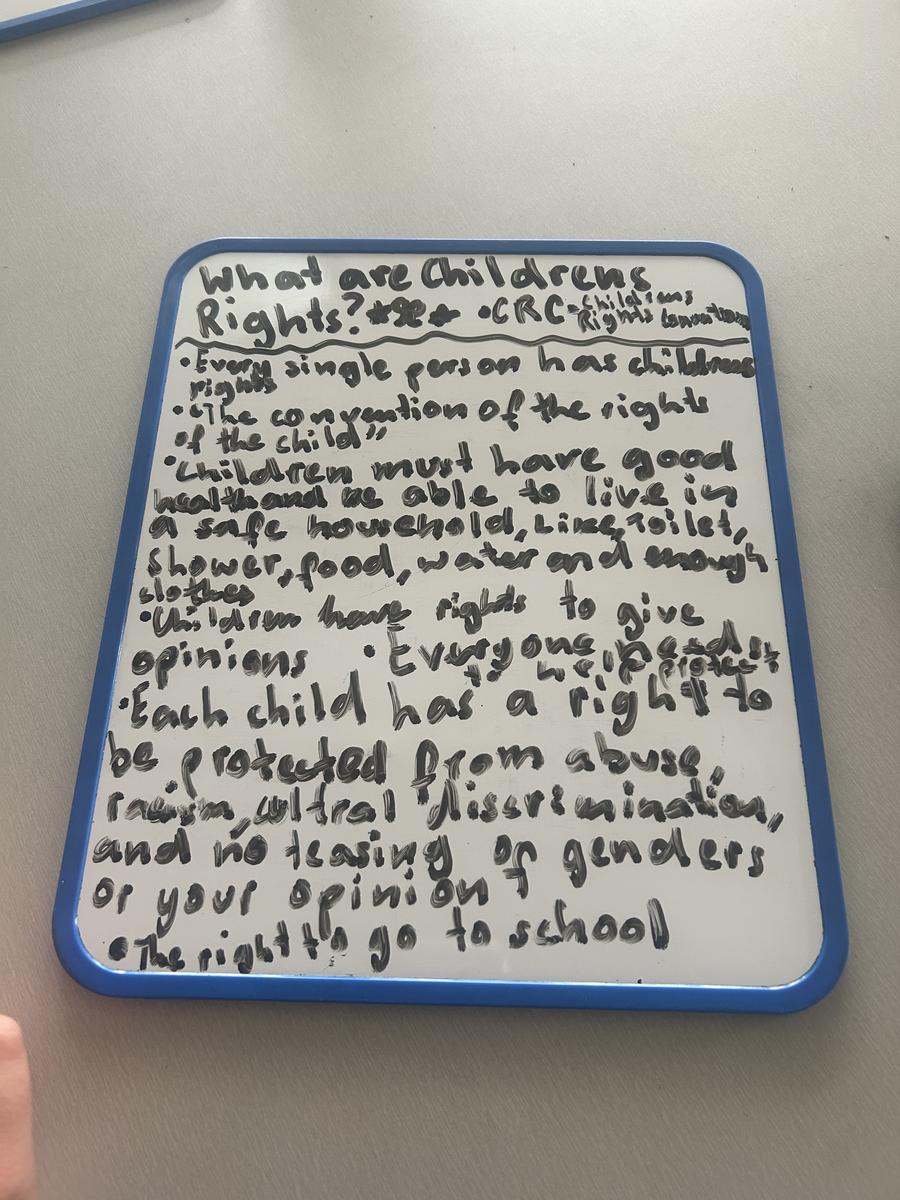 What are Childrens
Rights? •CRC-Childrens
Rights Convention
•Every single person has childrens
rights
•"The convention of the rights
of the child"
•Children must have good
health and be able to live in
a safe household, Like, Toilet,
shower, food, water and enough
clothes
•Children have rights to give
opinions •Everyone needs
to be protect
•Each child has a right to
be protected from abuse,
racism, cultral discrimination,
and no teasing of genders
or your opinion
•The right to go to school